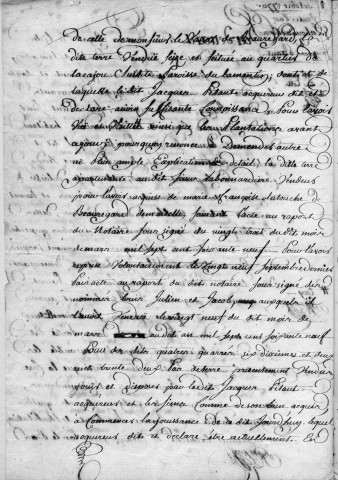 de celle de monsieur le Baron de Beauregard, La
dite terre Vendüe size et scituée au quartier de
Lacajou Susdite Paroisse du Lamentin; dont et de
laquelle le dit Jacques Petaut acquereur dit et
déclare avoir suffisante Connoissance Pour l'avoir
Vüe et Visitée ainsi que les Plantations avant
agouy pourquoy renonce à Demander autre
ne Plus ample Explication ny detail. La ditte terre
appartenante au dit sieur Labonnardiere Vendeur
pour l'avoir acquise de marie françoise Latouche de
Beauregard demoiselle suivant l'acte au raport
du Notaire sous signé du vingt huit du dit mois
de mars mil sept cent soixante neuf Pour l'avoir
reprise Volontairement le Vingt neuf Septembre dernier
Par acte au raport du dit notaire sous signé sur
nommés Louis Julien et Jacob, auxquels il
l'avoit Venduë le vingt neuf du dit mois de
mars au dit an mil sept cent soixante neuf
Pour des dits quatre quarrés six dixiemes et deux
cent trente deux Pas de terre presentement Vendus
jouir et disposer par le dit Jacques Petaut
acquéreur et les siens Comme de son bien acquis
à Commencer La jouissance de ce dit jourd'huy lequel
acquereur dit et déclare être actuellement. En